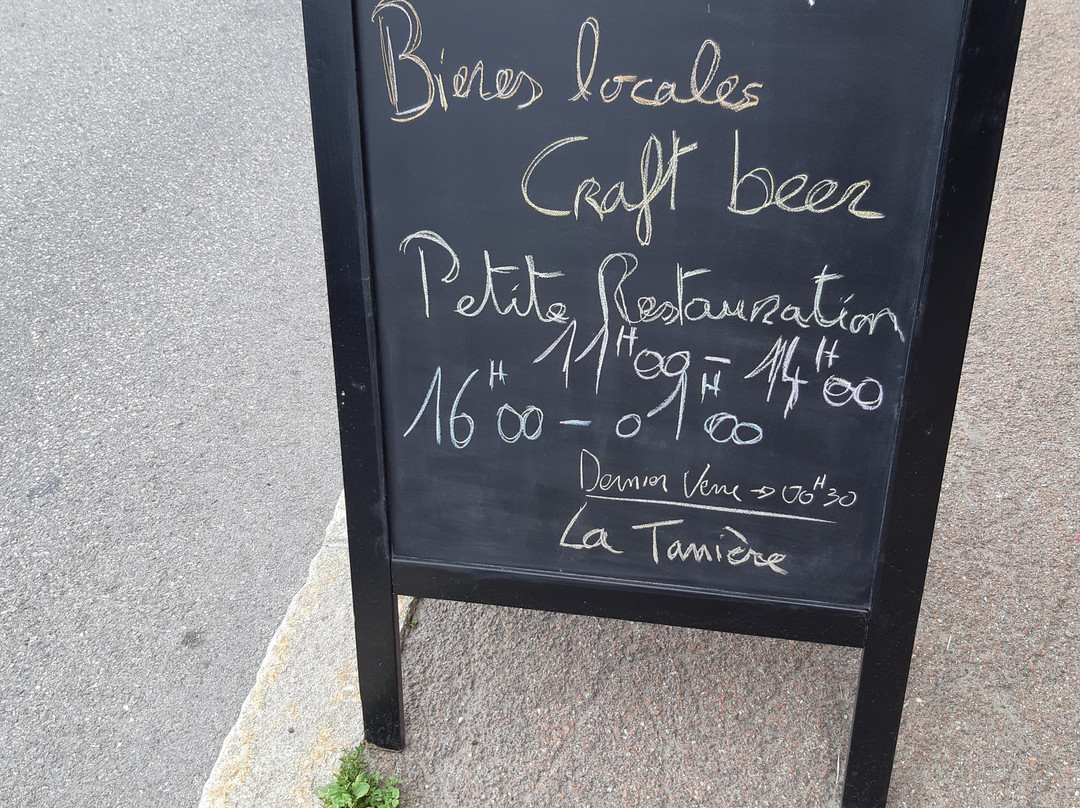 Bieres locales
Craft beer
Petite Restauration
11H00 - 14H00
16H00 - 01H00
Dernier Verre → 00H30
La Tanière